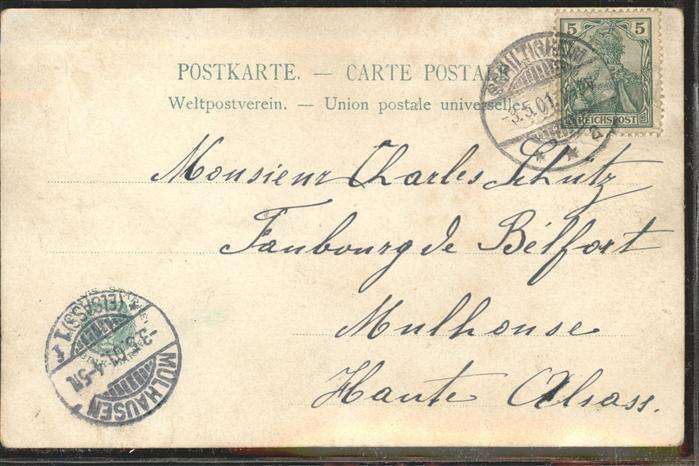 5 5
REICHSPOST
POSTKARTE. — CARTE POSTALE
Weltpostverein. — Union postale universelle
-3.5.01.
Monsieur Charles Schütz
Faubourg de Bélfort
Mulhouse
Haute Alsass.
MÜLHAUSEN
(ELSASS) 1
-3.5.01.4-5N